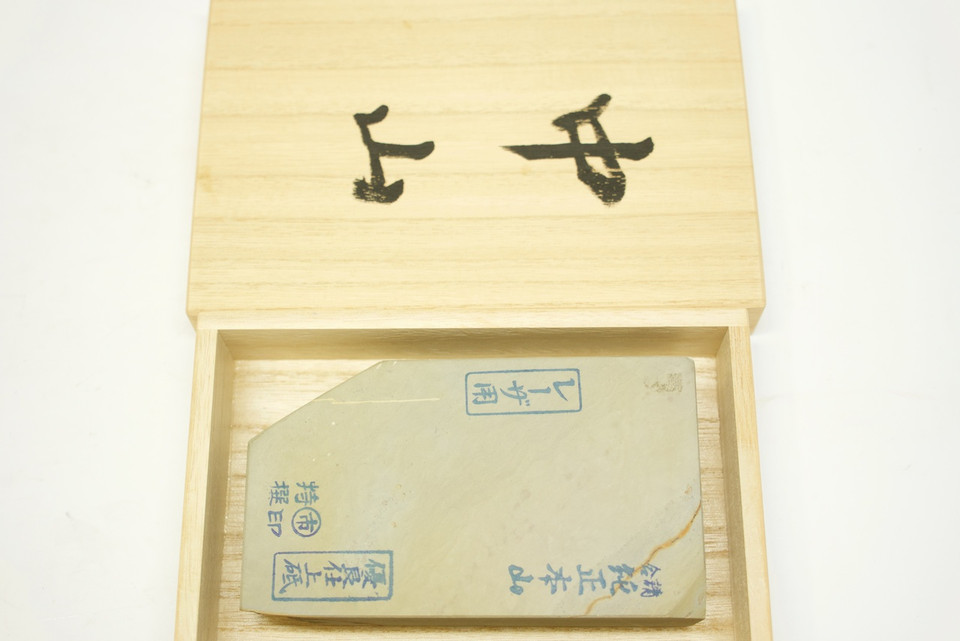 中山
レーザ用
請合
純正本山
市印
特撰
優良仕上砥